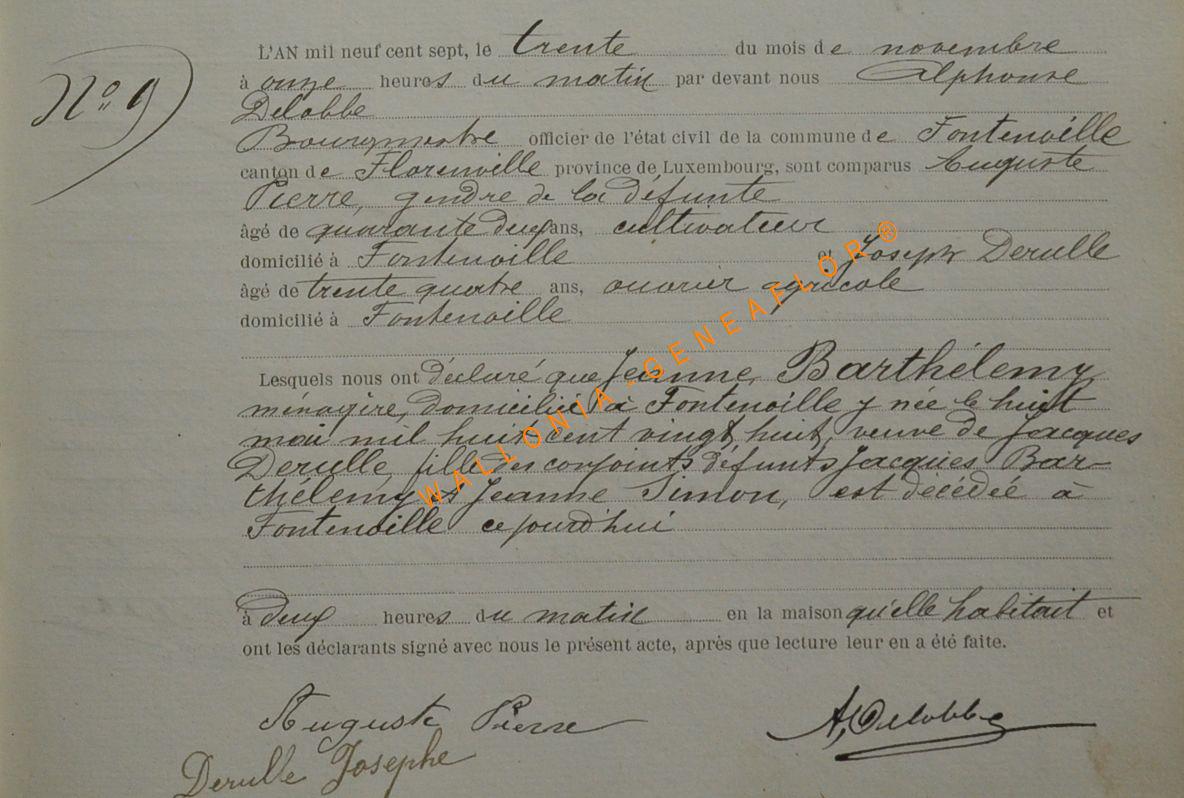 N° 9
L'AN mil neuf cent sept, le trente du mois de novembre
à onze heures du matin par devant nous Alphonse
Delobbe
Bourgmestre officier de l'état civil de la commune de Fontenoille
canton de Florenville province de Luxembourg, sont comparus Auguste
Pierre, gendre de la défunte
âgé de quarante deux ans, cultivateur
domicilié à Fontenoille et Joseph Derulle
âgé de trente quatre ans, ouvrier agricole
domicilié à Fontenoille
Lesquels nous ont déclaré que Jeanne Barthélemy
ménagère, domiciliée à Fontenoille y née le huit
mai mil huit cent vingt huit, veuve de Jacques
Derulle, fille des conjoints défunts Jacques Bar-
thélemy et Jeanne Simon, est décédée à
Fontenoille cejourd'hui
à deux heures du matin en la maison qu'elle habitait et
ont les déclarants signé avec nous le présent acte, après que lecture leur en a été faite.
Auguste Pierre
A, Delobbe
Derulle Josephe
WALLONIA - GENEAFLOR ®